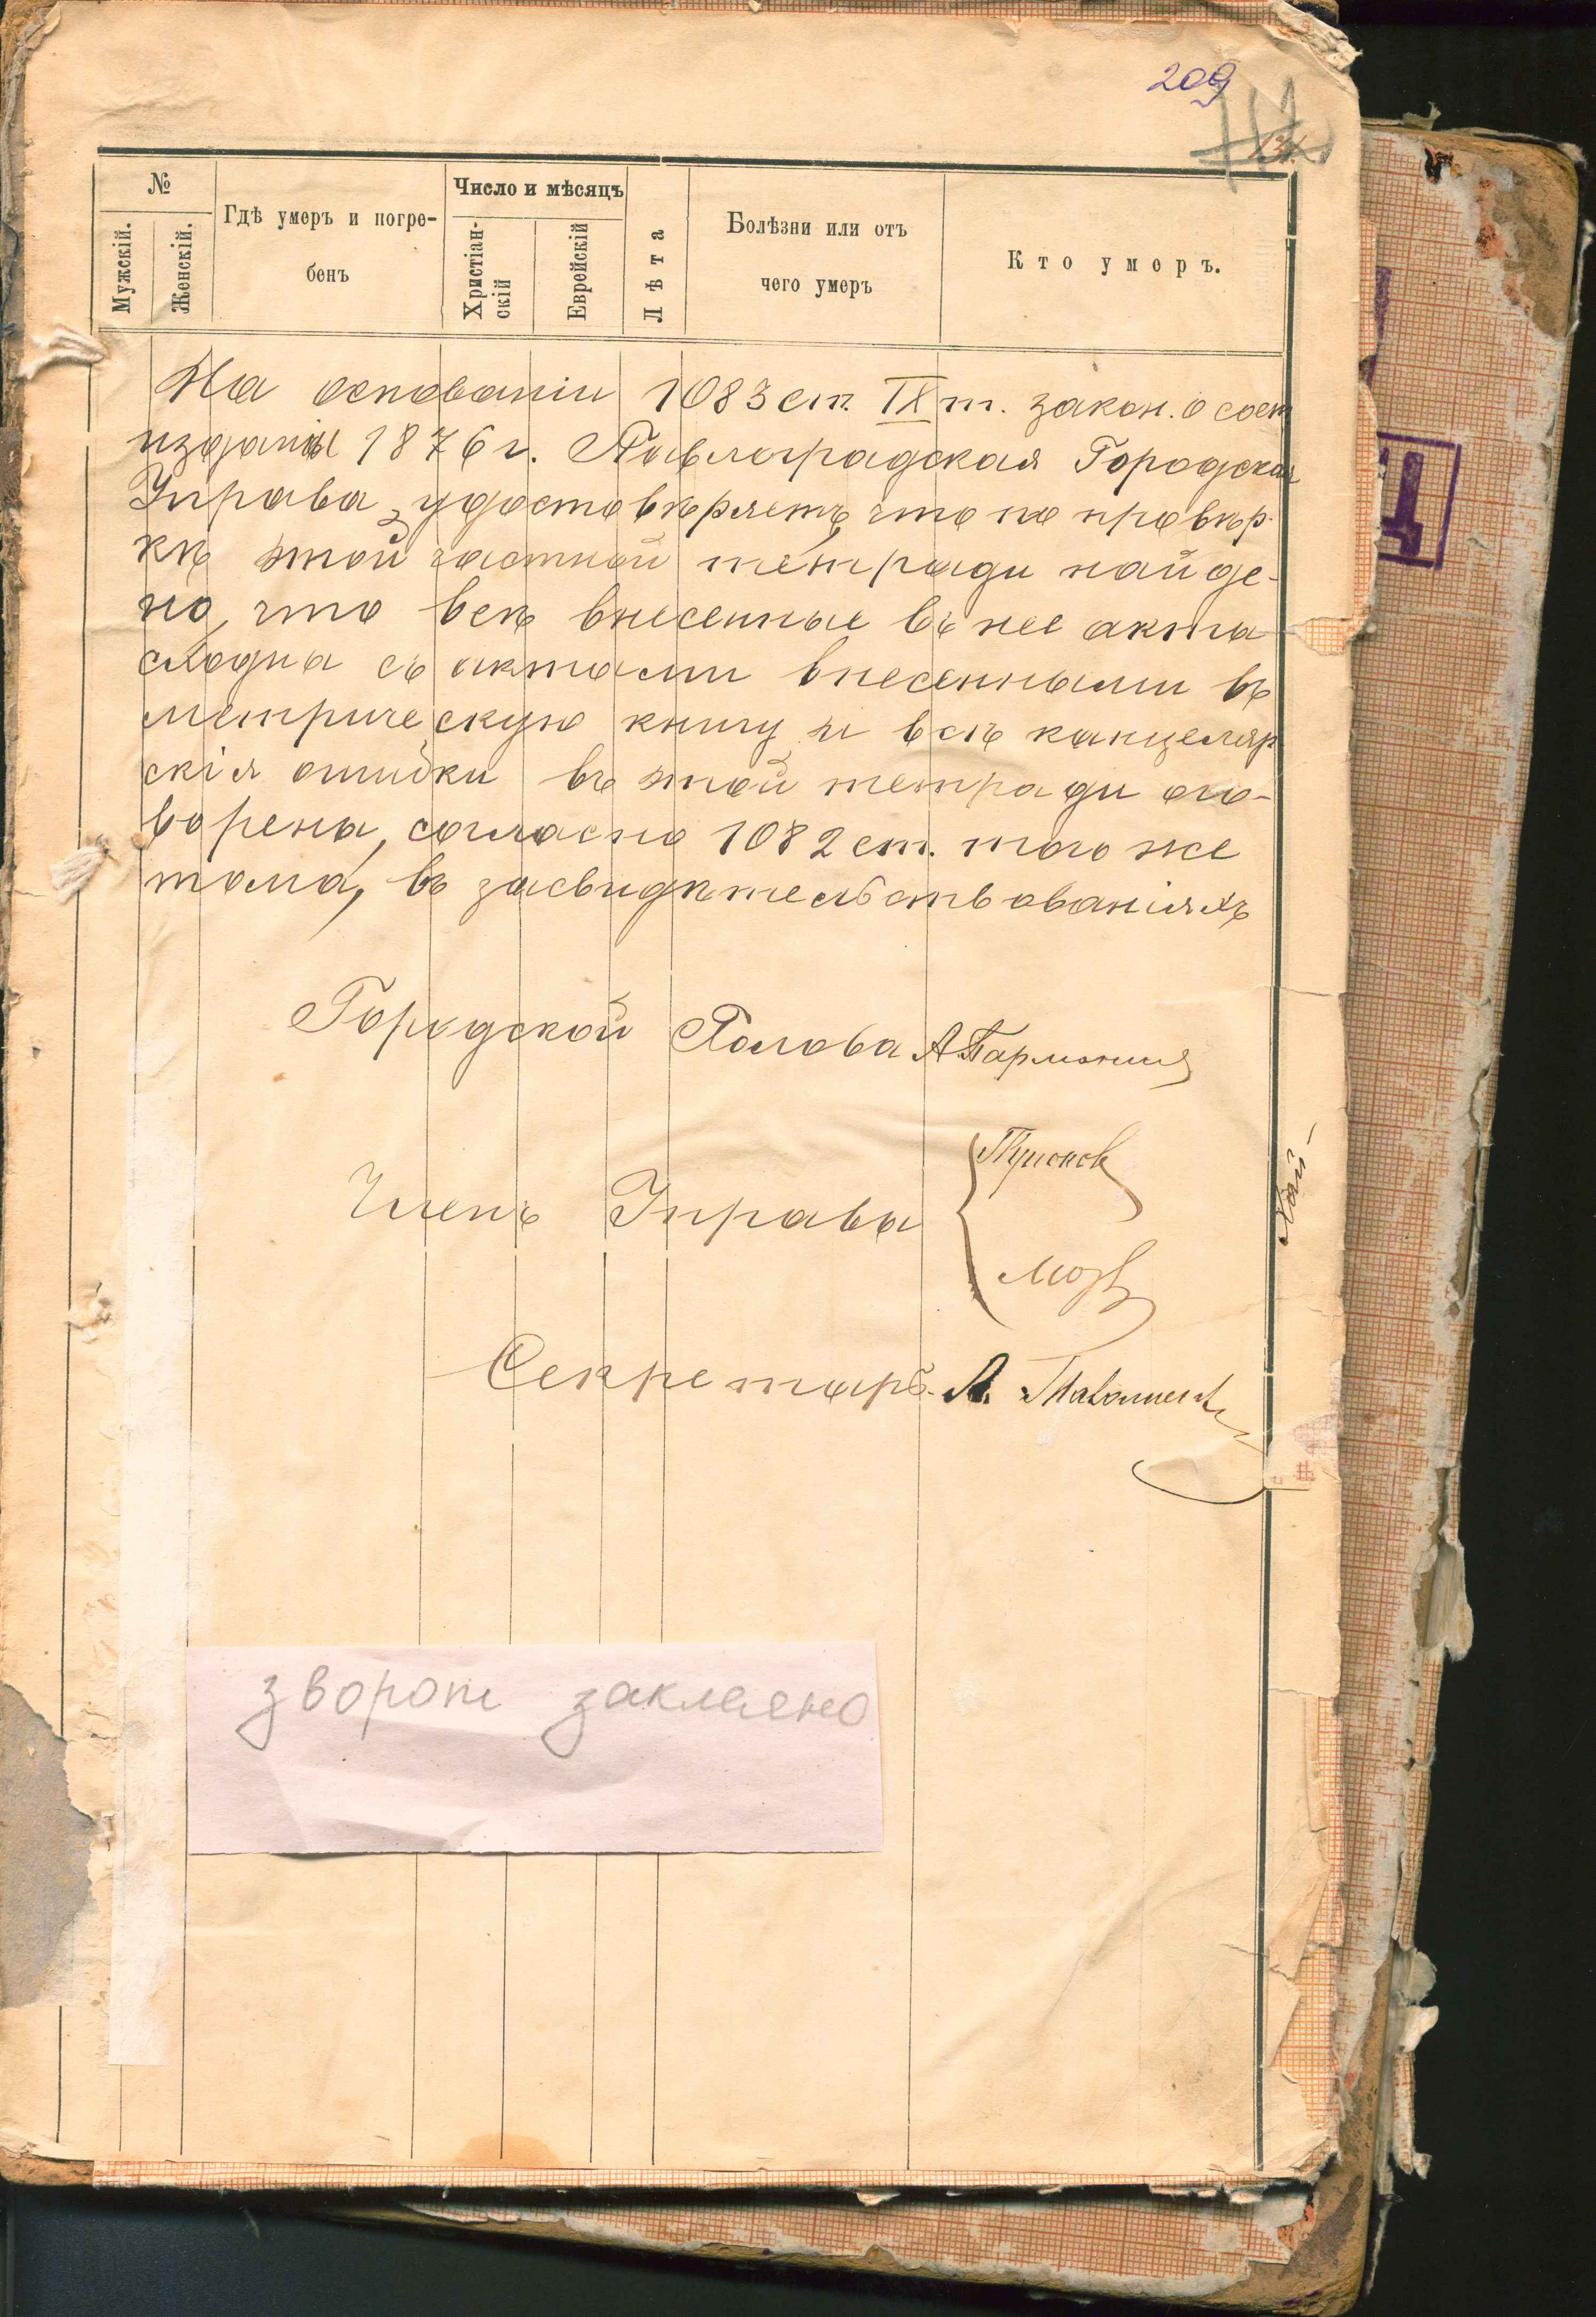 209
№
Мужскій.
Женскій.
Гдѣ умеръ и погре-
бенъ
Число и мѣсяцъ
Христіан-
скій
Еврейскій
Лѣта
Болѣзни или отъ
чего умеръ
Кто умеръ.
На основаніи 1083 ст. IX т. закон. о сост
изданія 1876 г. Павлоградская Городская
Управа удостовѣряетъ, что по провѣр-
кѣ этой частной тетради найде-
но, что всѣ внесенные въ нее акты
сходны съ актами внесенными въ
метрическую книгу и всѣ канцеляр
скія ошибки въ этой тетради ого-
ворены, согласно 1082 ст. того же
тома, въ засвидѣтельствованіяхъ
Городской Голова А.
Члены Управы
Секретарь А.
зворот заклеєно
Д